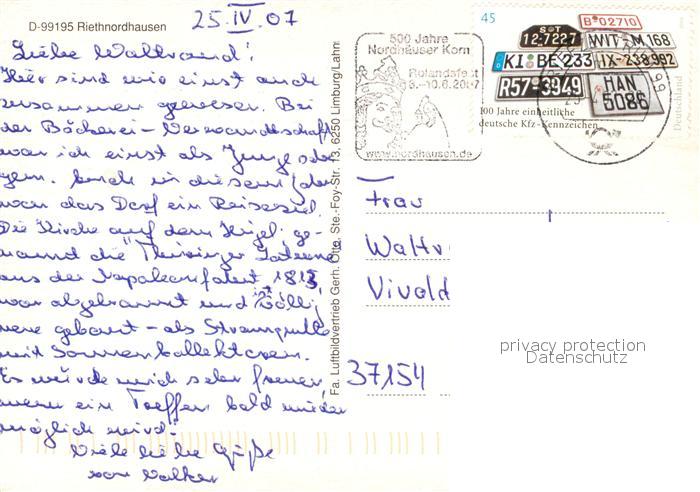 D-99195 Riethnordhausen
25.IV.07
Liebe Waltraud!
Hier sind wir einst auch
zusammen gewesen. Bei
der Bäckerei-Verwandtschaft
war ich einst als Junge sehr
gern. Auch in diesem Jahr
war das Dorf ein Reiseziel.
Die Kirche auf dem Hügel ge-
nannt die "Thüringer
aus der 1813,
war abgebrannt und völlig
neu gebaut - als Stromquelle
mit Sonnenkollektoren.
Es würde mich sehr freuen
wenn ein Treffen bald wieder
möglich wird!
Viele liebe Grüße
von Volker
Fa. Luftbildvertrieb Gerh. Otto, Ste.-Foy-Str. 13, 6250 Limburg/Lahn
500 Jahre
Nordhäuser Korn
Rolandsfest
.-10.6.2007
www.nordhausen.de
45
S T
12-7227
B-02710
WIT-M 168
KI BE 233
IX-238.992
R57-3949
HAN
5086
100 Jahre einheitliche
deutsche Kfz-Kennzeichen
Deutschland
Frau
Waltr
Vivald
37154
privacy protection
Datenschutz